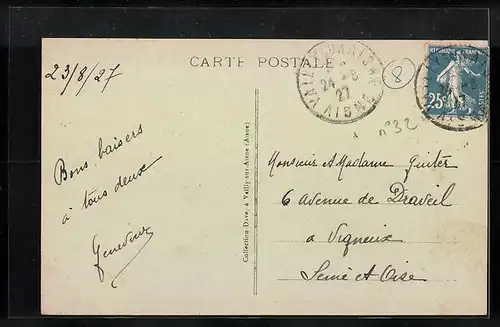 CARTE POSTALE
23/8/27
Bons baisers
à tous deux
Geneviève
Collection Dave, à Vailly-sur-Aisne (Aisne)
24-8
27
AISNE
8
n°32
Monsieur et Madame Guiter
6 avenue de Draveil
à Vigneux
Seine et Oise
25c